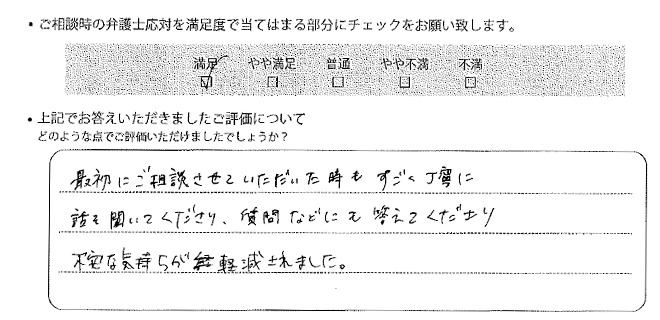 ・ご相談時の弁護士応対を満足度で当てはまる部分にチェックをお願い致します。
満足 やや満足 普通 やや不満 不満
☑ □ □ □ □
・上記でお答えいただきましたご評価について
どのような点でご評価いただけましたでしょうか？
最初にご相談させていただいた時も すごく丁寧に
話を聞いてくださり、質問などにも答えてくださり
不安な気持ちが軽減されました。